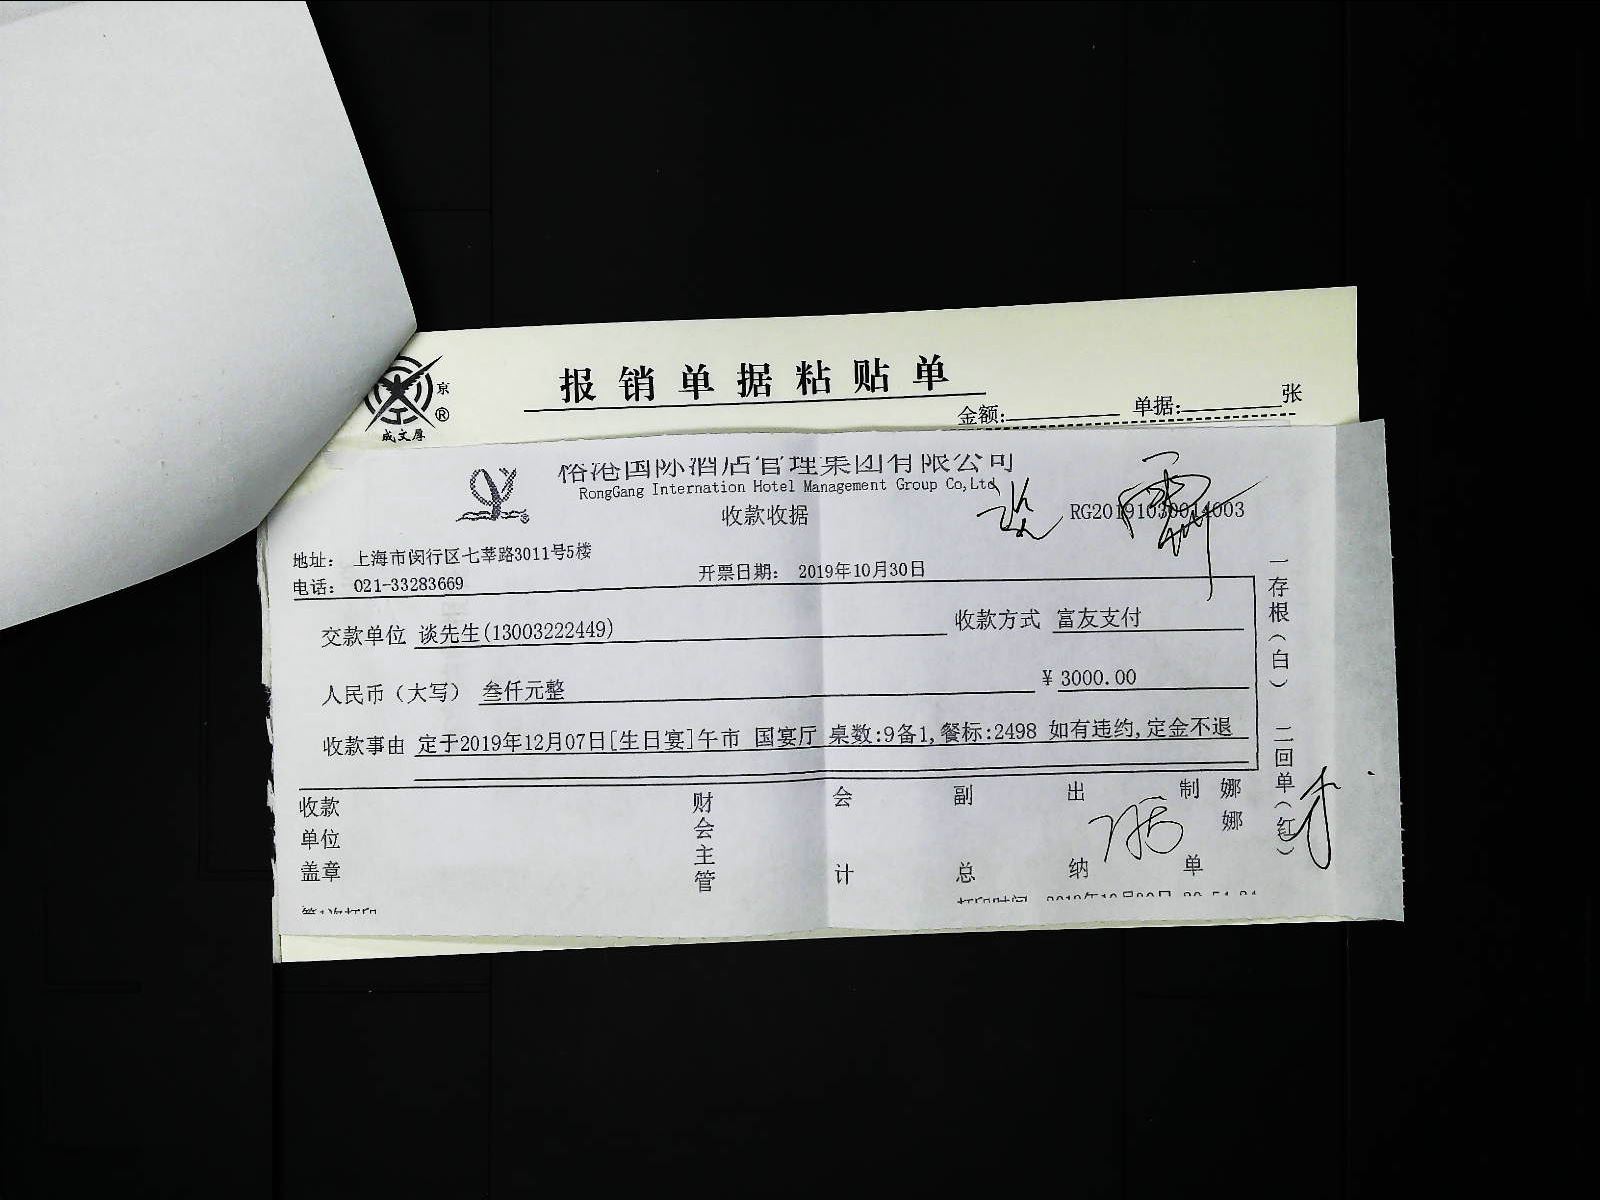 报销单据粘贴单
京
®
成文厚
金额: 单据: 张
国际酒店管理集团有限公司
RongGang Internation Hotel Management Group Co,Ltd
收款收据
地址： 上海市闵行区七莘路3011号5楼
电话： 021-33283669
开票日期： 2019年10月30日
交款单位 谈先生(13003222449) 收款方式 富友支付
人民币（大写） 叁仟元整 ¥3000.00
收款事由 定于2019年12月07日[生日宴]午市 国宴厅 桌数:9备1,餐标:2498 如有违约,定金不退
收款单位盖章
财会主管
会计
副总
出纳
制单
娜娜
一存根（白） 二回单（红）
第1次打印
打印时间